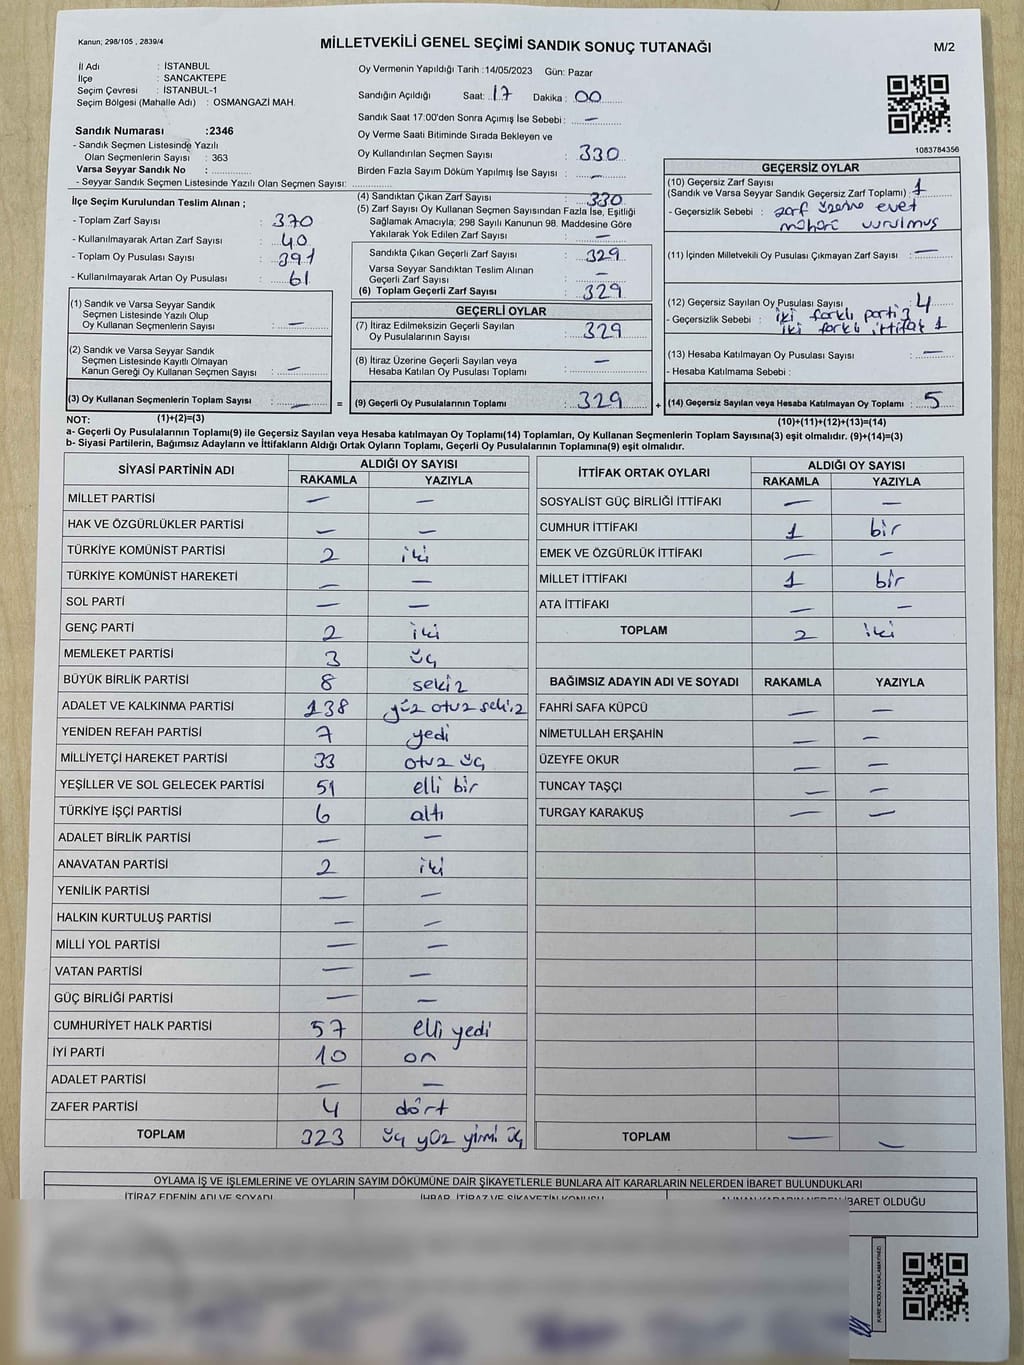 Kanun; 298/105 , 2839/4
MİLLETVEKİLİ GENEL SEÇİMİ SANDIK SONUÇ TUTANAĞI
M/2
İl Adı : İSTANBUL
İlçe : SANCAKTEPE
Seçim Çevresi : İSTANBUL-1
Seçim Bölgesi (Mahalle Adı) : OSMANGAZİ MAH.
Sandık Numarası :2346
- Sandık Seçmen Listesinde Yazılı
Olan Seçmenlerin Sayısı : 363
Varsa Seyyar Sandık No :
- Seyyar Sandık Seçmen Listesinde Yazılı Olan Seçmen Sayısı:
Oy Vermenin Yapıldığı Tarih :14/05/2023 Gün: Pazar
Sandığın Açıldığı Saat: 17 Dakika : 00
Sandık Saat 17:00'den Sonra Açımış İse Sebebi : —
Oy Verme Saati Bitiminde Sırada Bekleyen ve
Oy Kullandırılan Seçmen Sayısı : 330
Birden Fazla Sayım Döküm Yapılmış İse Sayısı : —
1083784356
İlçe Seçim Kurulundan Teslim Alınan ;
- Toplam Zarf Sayısı : 370
- Kullanılmayarak Artan Zarf Sayısı : 40
- Toplam Oy Pusulası Sayısı : 391
- Kullanılmayarak Artan Oy Pusulası : 61
(1) Sandık ve Varsa Seyyar Sandık
Seçmen Listesinde Yazılı Olup
Oy Kullanan Seçmenlerin Sayısı : —
(2) Sandık ve Varsa Seyyar Sandık
Seçmen Listesinde Kayıtlı Olmayan
Kanun Gereği Oy Kullanan Seçmen Sayısı : —
(3) Oy Kullanan Seçmenlerin Toplam Sayısı : —
(4) Sandıktan Çıkan Zarf Sayısı : 330
(5) Zarf Sayısı Oy Kullanan Seçmen Sayısından Fazla İse, Eşitliği
Sağlamak Amacıyla; 298 Sayılı Kanunun 98. Maddesine Göre
Yakılarak Yok Edilen Zarf Sayısı : —
Sandıkta Çıkan Geçerli Zarf Sayısı : 329
Varsa Seyyar Sandıktan Teslim Alınan
Geçerli Zarf Sayısı : —
(6) Toplam Geçerli Zarf Sayısı : 329
GEÇERLİ OYLAR
(7) İtiraz Edilmeksizin Geçerli Sayılan
Oy Pusulalarının Sayısı : 329
(8) İtiraz Üzerine Geçerli Sayılan veya
Hesaba Katılan Oy Pusulası Toplamı : —
= (9) Geçerli Oy Pusulalarının Toplamı : 329
GEÇERSİZ OYLAR
(10) Geçersiz Zarf Sayısı
(Sandık ve Varsa Seyyar Sandık Geçersiz Zarf Toplamı) : 1
- Geçersizlik Sebebi : zarf üzerine evet
mührü vurulmuş
(11) İçinden Milletvekili Oy Pusulası Çıkmayan Zarf Sayısı : —
(12) Geçersiz Sayılan Oy Pusulası Sayısı : 4
- Geçersizlik Sebebi : iki farklı parti 3
iki farklı ittifak 1
(13) Hesaba Katılmayan Oy Pusulası Sayısı : —
- Hesaba Katılmama Sebebi :
+ (14) Geçersiz Sayılan veya Hesaba Katılmayan Oy Toplamı : 5
NOT: (1)+(2)=(3)
(10)+(11)+(12)+(13)=(14)
a- Geçerli Oy Pusulalarının Toplamı(9) ile Geçersiz Sayılan veya Hesaba katılmayan Oy Toplamı(14) Toplamları, Oy Kullanan Seçmenlerin Toplam Sayısına(3) eşit olmalıdır. (9)+(14)=(3)
b- Siyasi Partilerin, Bağımsız Adayların ve İttifakların Aldığı Ortak Oyların Toplamı, Geçerli Oy Pusulalarının Toplamına(9) eşit olmalıdır.
SİYASİ PARTİNİN ADI ALDIĞI OY SAYISI
RAKAMLA YAZIYLA
MİLLET PARTİSİ — —
HAK VE ÖZGÜRLÜKLER PARTİSİ — —
TÜRKİYE KOMÜNİST PARTİSİ 2 iki
TÜRKİYE KOMÜNİST HAREKETİ — —
SOL PARTİ — —
GENÇ PARTİ 2 iki
MEMLEKET PARTİSİ 3 üç
BÜYÜK BİRLİK PARTİSİ 8 sekiz
ADALET VE KALKINMA PARTİSİ 138 yüz otuz sekiz
YENİDEN REFAH PARTİSİ 7 yedi
MİLLİYETÇİ HAREKET PARTİSİ 33 otuz üç
YEŞİLLER VE SOL GELECEK PARTİSİ 51 elli bir
TÜRKİYE İŞÇİ PARTİSİ 6 altı
ADALET BİRLİK PARTİSİ — —
ANAVATAN PARTİSİ 2 iki
YENİLİK PARTİSİ — —
HALKIN KURTULUŞ PARTİSİ — —
MİLLİ YOL PARTİSİ — —
VATAN PARTİSİ — —
GÜÇ BİRLİĞİ PARTİSİ — —
CUMHURİYET HALK PARTİSİ 57 elli yedi
İYİ PARTİ 10 on
ADALET PARTİSİ — —
ZAFER PARTİSİ 4 dört
TOPLAM 323 üç yüz yirmi üç
İTTİFAK ORTAK OYLARI ALDIĞI OY SAYISI
RAKAMLA YAZIYLA
SOSYALİST GÜÇ BİRLİĞİ İTTİFAKI — —
CUMHUR İTTİFAKI 1 bir
EMEK VE ÖZGÜRLÜK İTTİFAKI — —
MİLLET İTTİFAKI 1 bir
ATA İTTİFAKI — —
TOPLAM 2 iki
BAĞIMSIZ ADAYIN ADI VE SOYADI RAKAMLA YAZIYLA
FAHRİ SAFA KÜPCÜ — —
NİMETULLAH ERŞAHİN — —
ÜZEYFE OKUR — —
TUNCAY TAŞÇI — —
TURGAY KARAKUŞ — —
TOPLAM — —
OYLAMA İŞ VE İŞLEMLERİNE VE OYLARIN SAYIM DÖKÜMÜNE DAİR ŞİKAYETLERLE BUNLARA AİT KARARLARIN NELERDEN İBARET BULUNDUKLARI
İTİRAZ EDENİN ADI VE SOYADI İHBAR, İTİRAZ VE ŞİKAYETİN KONUSU ALINAN KARARIN NEDEN İBARET OLDUĞU
KARE KODU KARALAMAYINIZ!